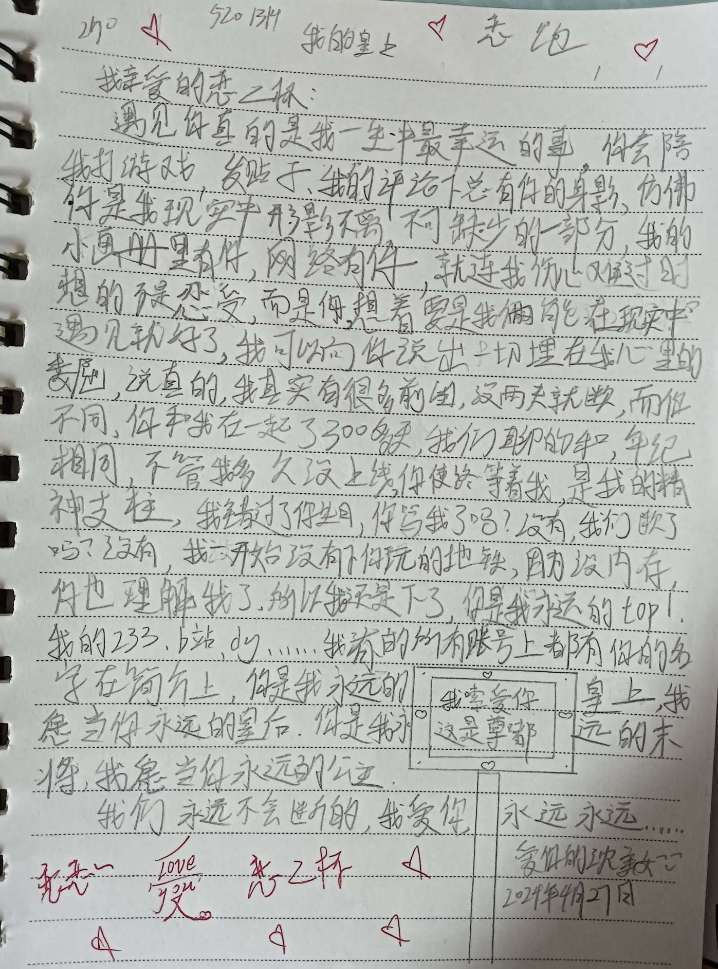 520 1314
我的皇上
我亲爱的恋之杯:
遇见你真的是我一生中最幸运的事,你会陪
我打游戏,发贴子,我的评论下总有你的身影,仿佛
你是我现实中形影不离,不可缺少的一部分,我的
小画册里有你,网络有你,就连我伤心难过时
想的不是恋爱,而是你,想着要是我俩能在现实中
遇见就好了,我可以向你说出一切埋在我心里的
委屈,说真的,我其实有很多前 ,没两天就断,而你
不同,你和我在一起了300多天,我们聊的 ,年纪
相同,不管我多久没上线,你使终等着我,是我的精
神支柱,我错过了你生日,你骂我了吗?没有,我们断了
吗?没有,我 开始没有下你玩的地铁,因为没内存,
你也理解我了.所以我还是下了,你是我永远的top1.
我的233.b站,dy......我有的所有账号上都有你的名
字在简介上,你是我永远的皇上,我
愿当你永远的皇后.你是我永远的末
将,我愿当你永远的公主.
我们永远不会断的,我爱你,永远永远......
我 爱你
这是尊嘟
爱你的
2024年4月27日
love
you
爱
恋之杯